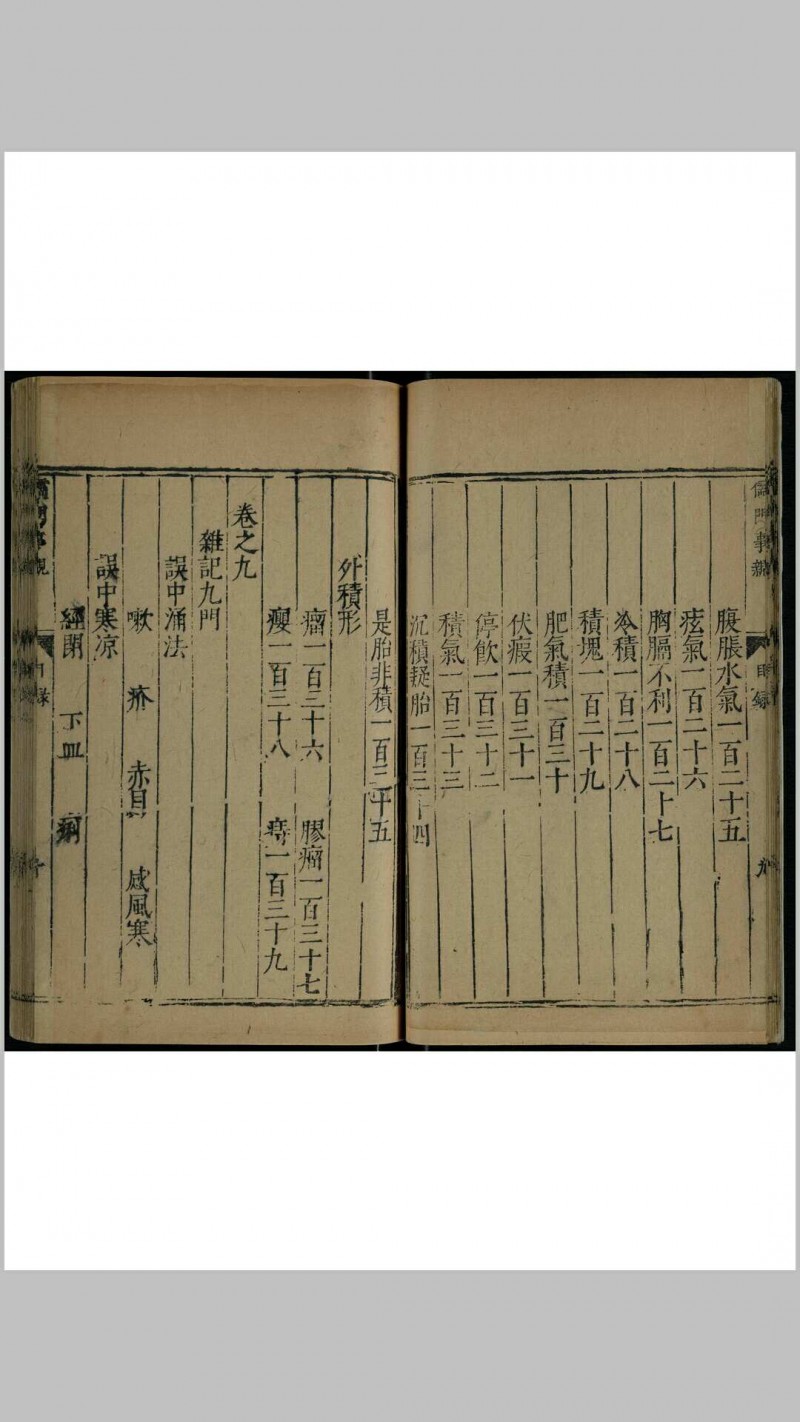 儒門事親
目錄
九
腹脹水氣一百二十五
痃氣一百二十六
胸膈不利一百二十七
冷積一百二十八
積塊一百二十九
肥氣積一百三十
伏瘕一百三十一
停飲一百三十二
積氣一百三十三
沉積疑胎一百三十四
是胎非積一百三十五
外積形
瘤一百三十六 膠瘤一百三十七
癭一百三十八 痔一百三十九
卷之九
雜記九門
誤中涌法
嗽 疥 赤目 感風寒
誤中寒凉
經閉 下血 痢
目錄
十